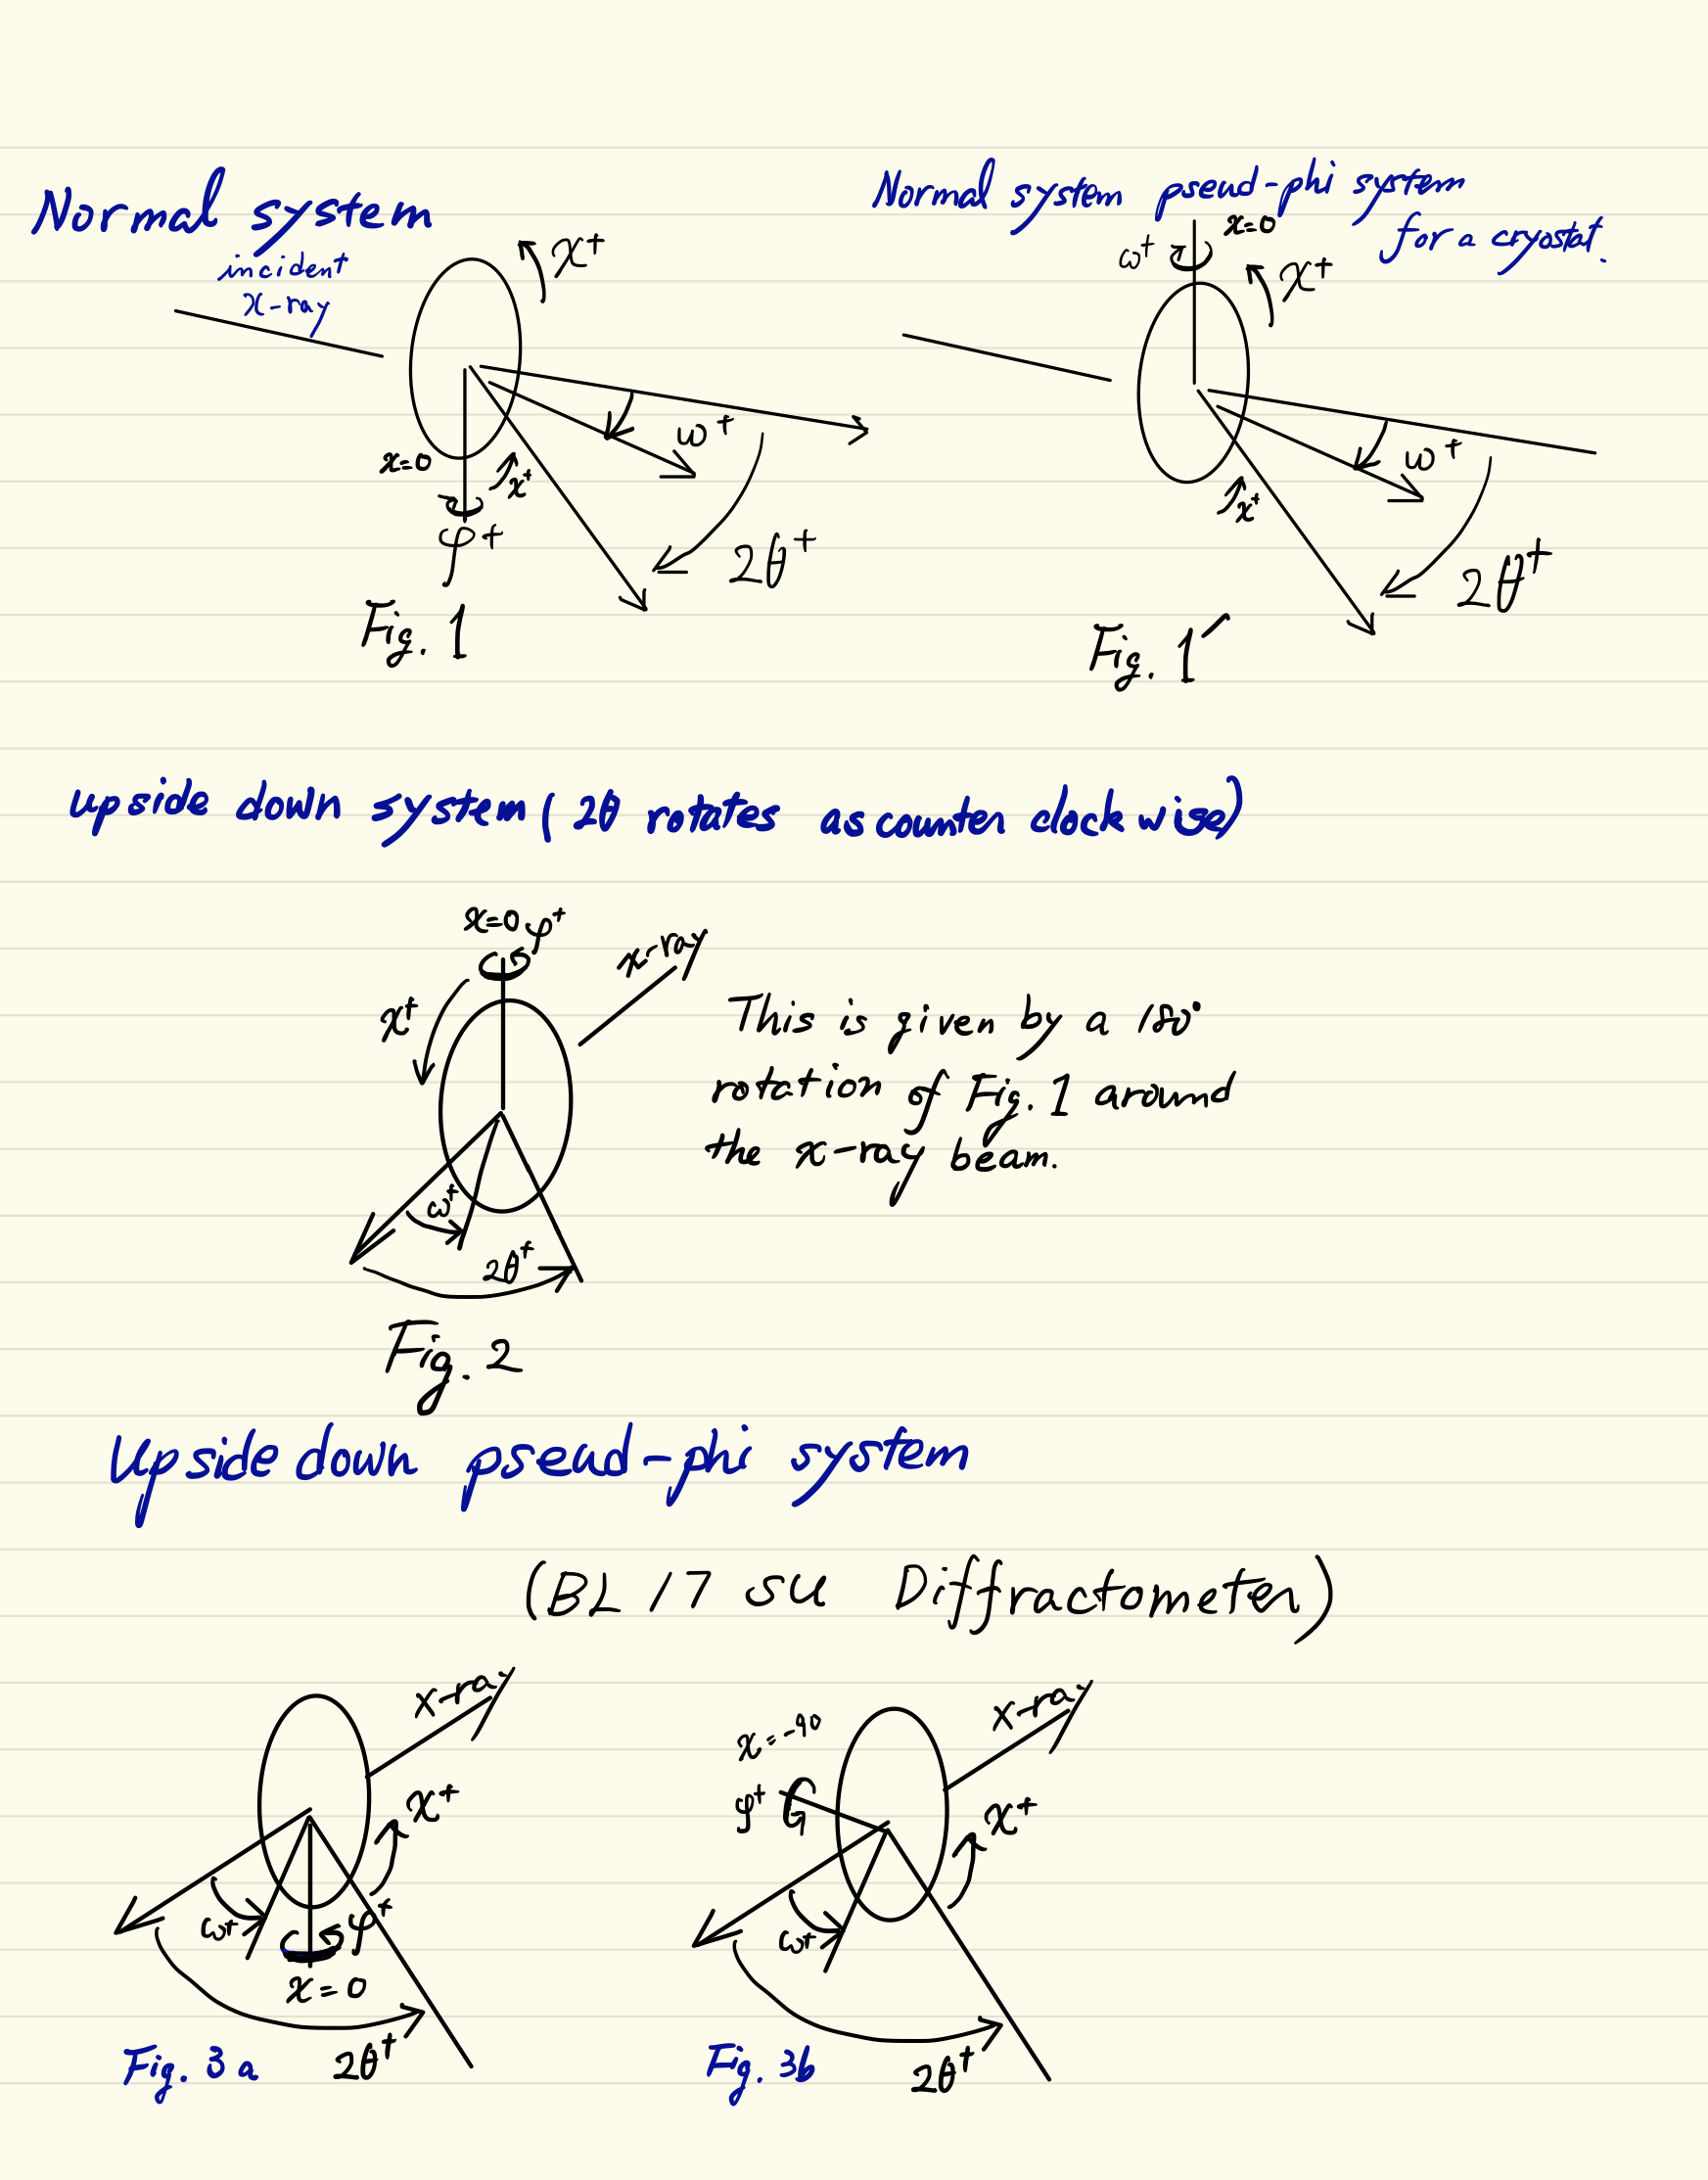 Normal system
incident
x-ray
χ+
χ=0
χ+
ω+
φ+
2θ+
Fig. 1
Normal system pseud-phi system
for a cryostat.
χ=0
ω+
χ+
ω+
χ+
2θ+
Fig. 1′
upside down system (2θ rotates as counter clock wise)
χ=0 φ+
x-ray
χ+
This is given by a 180°
rotation of Fig. 1 around
the x-ray beam.
ω+
2θ+
Fig. 2
Upside down pseud-phi system
(BL 17 SU Diffractometer)
x-ray
χ+
ω+
φ+
χ=0
2θ+
Fig. 3a
x-ray
χ=-90
φ+
χ+
ω+
2θ+
Fig. 3b